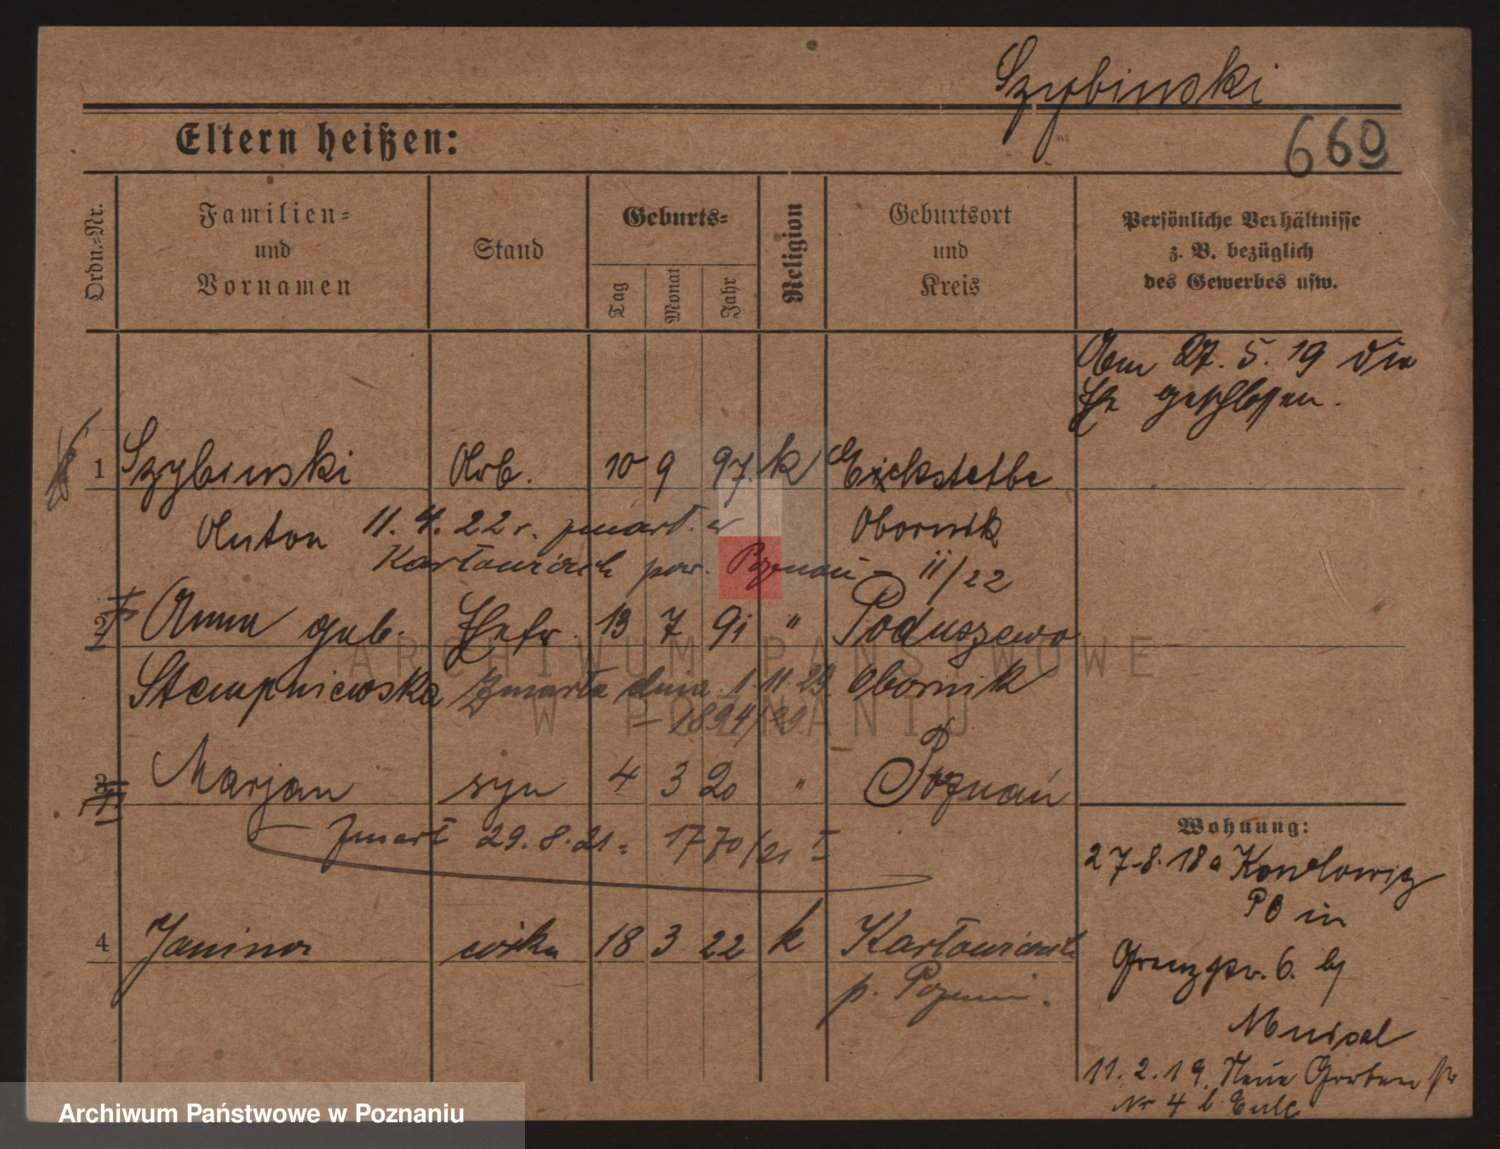 Szybinski
669
Eltern heißen:
Ordn.-Nr.
Familien-
und
Vornamen
Stand
Geburts-
Tag
Monat
Jahr
Religion
Geburtsort
und
Kreis
Persönliche Verhältnisse
z. B. bezüglich
des Gewerbes usw.
Am 27. 5. 19 die
Ehe geschlossen.
1 Szybinski Arb. 10 9 97. k Eickstetbe
Anton 11. 4. 22 r. zmarł. w Obornik
Karłowicach pow. Poznań – II/22
2 Anna geb. Ehefr. 13 7 91 " Poduszewo
Stempniewska Zmarła dnia 1. 11. 29 Obornik
– 1894/29
3 Marjan syn 4 3 20 " Poznań
Zmarł 29. 8. 21 = 1770/21 I
4 Janina córka 18 3 22 k Karłowicach
p. Poznań.
Wohnung:
27.8.18 a
in
6. b/
11. 2. 19. Neue Garten str
Nr 4 b.
ARCHIWUM PAŃSTWOWE
W POZNANIU
Archiwum Państwowe w Poznaniu